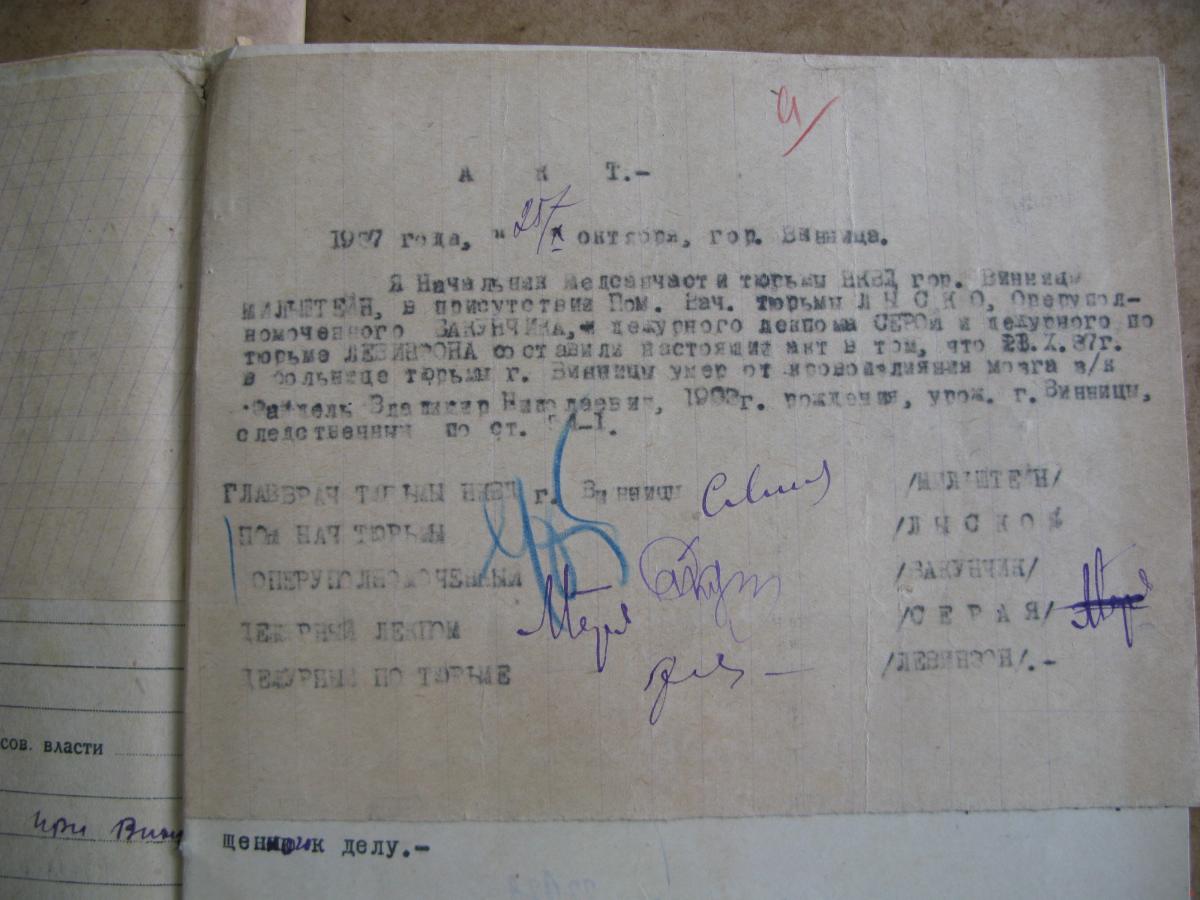 А К Т.-
1937 года, "25/X октября, гор. Винница.
Я Начальник Медсанчасти тюрьмы НКВД гор. Винницы
МИЛЬШТЕЙН, в присутствии Пом. Нач. тюрьмы Л Ы С К О, Оперупол-
номоченного ВАКУНЧИКА, дежурного лекпома СЕРОЙ и дежурного по
тюрьме ЛЕВИНЗОНА составили настоящий акт в том, что X.37г.
в больнице тюрьмы г. Винницы умер от кровоизлияния мозга з/к
Владимир Николаевич, рождения, урож. г. Винницы,
следственный по ст.
ГЛАВВРАЧ ТЮРЬМЫ НКВД г. Винницы /МИЛЬШТЕЙН/
ПОМ НАЧ ТЮРЬМЫ /Л Ы С К О/
ОПЕРУПОЛНОМОЧЕННЫЙ /ВАКУНЧИК/
ДЕЖУРНЫЙ ЛЕКПОМ /С Е Р А Я/
ДЕЖУРНЫЙ ПО ТЮРЬМЕ /ЛЕВИНЗОН/.-
сов. власти
при
к делу.-